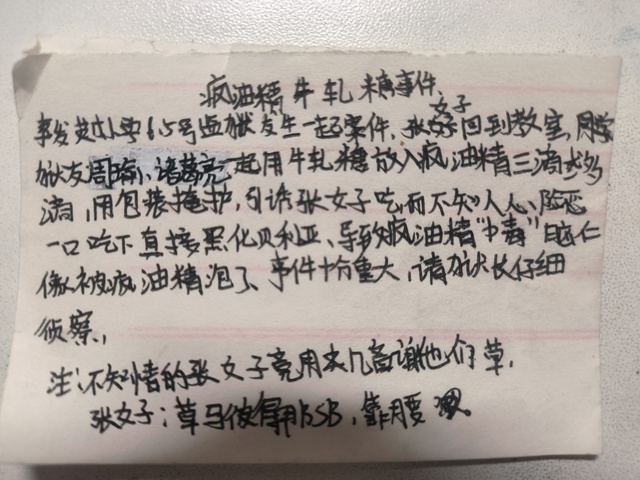 疯油精牛轧糖事件、
事发英才小学615号监狱发生一起案件、张女子回到教室,同学
狱友周瑜、诸葛亮一起用牛轧糖放入疯油精三滴多
滴,用包装掩护,引诱张女子吃,而不知人心险恶
一口吃下直接黑化贝利亚、导致疯油精"中毒"脑仁
像被疯油精泡了、事件十分重大,请狱长仔细
侦察,
注:不知情的张女子竟用 谢他们草,
张女子:草马彼得用 SB,靠腰